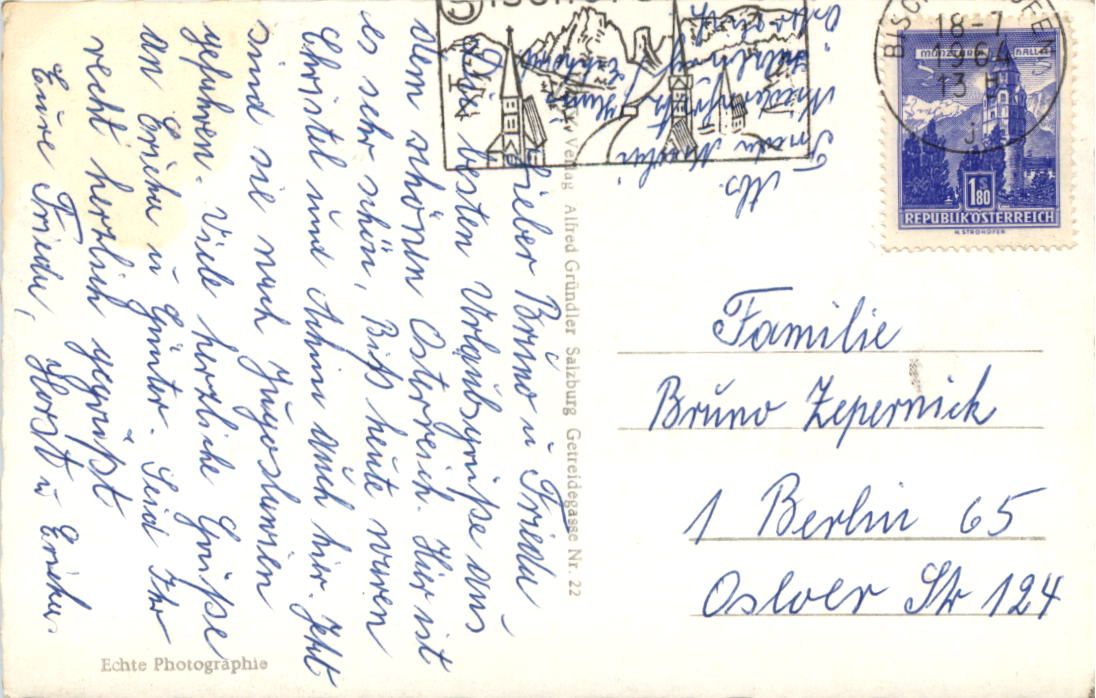 Lieber Bruno u Frieda
Die besten Urlaubsgrüße aus
dem schönen Österreich. Hier ist
es sehr schön, Biß heute waren
Christel und Achim auch hir. Jetzt
sind sie nach Jugoslawien
gefahren. Viele herzliche Grüße
an Ericha u Günter. Seid Ihr
recht herzlich gegrüßt
Eure Frieda, Horst u Ericha.
Echte Photographie
Verlag Alfred Gründler Salzburg Getreidegasse Nr. 22
Ab.
Frieda
18-7
1964
13
MÜNZTURM HALL
S
1.80
REPUBLIK ÖSTERREICH
H. STROHOFER
Familie
Bruno Zepernick
1 Berlin 65
Osloer Str 124